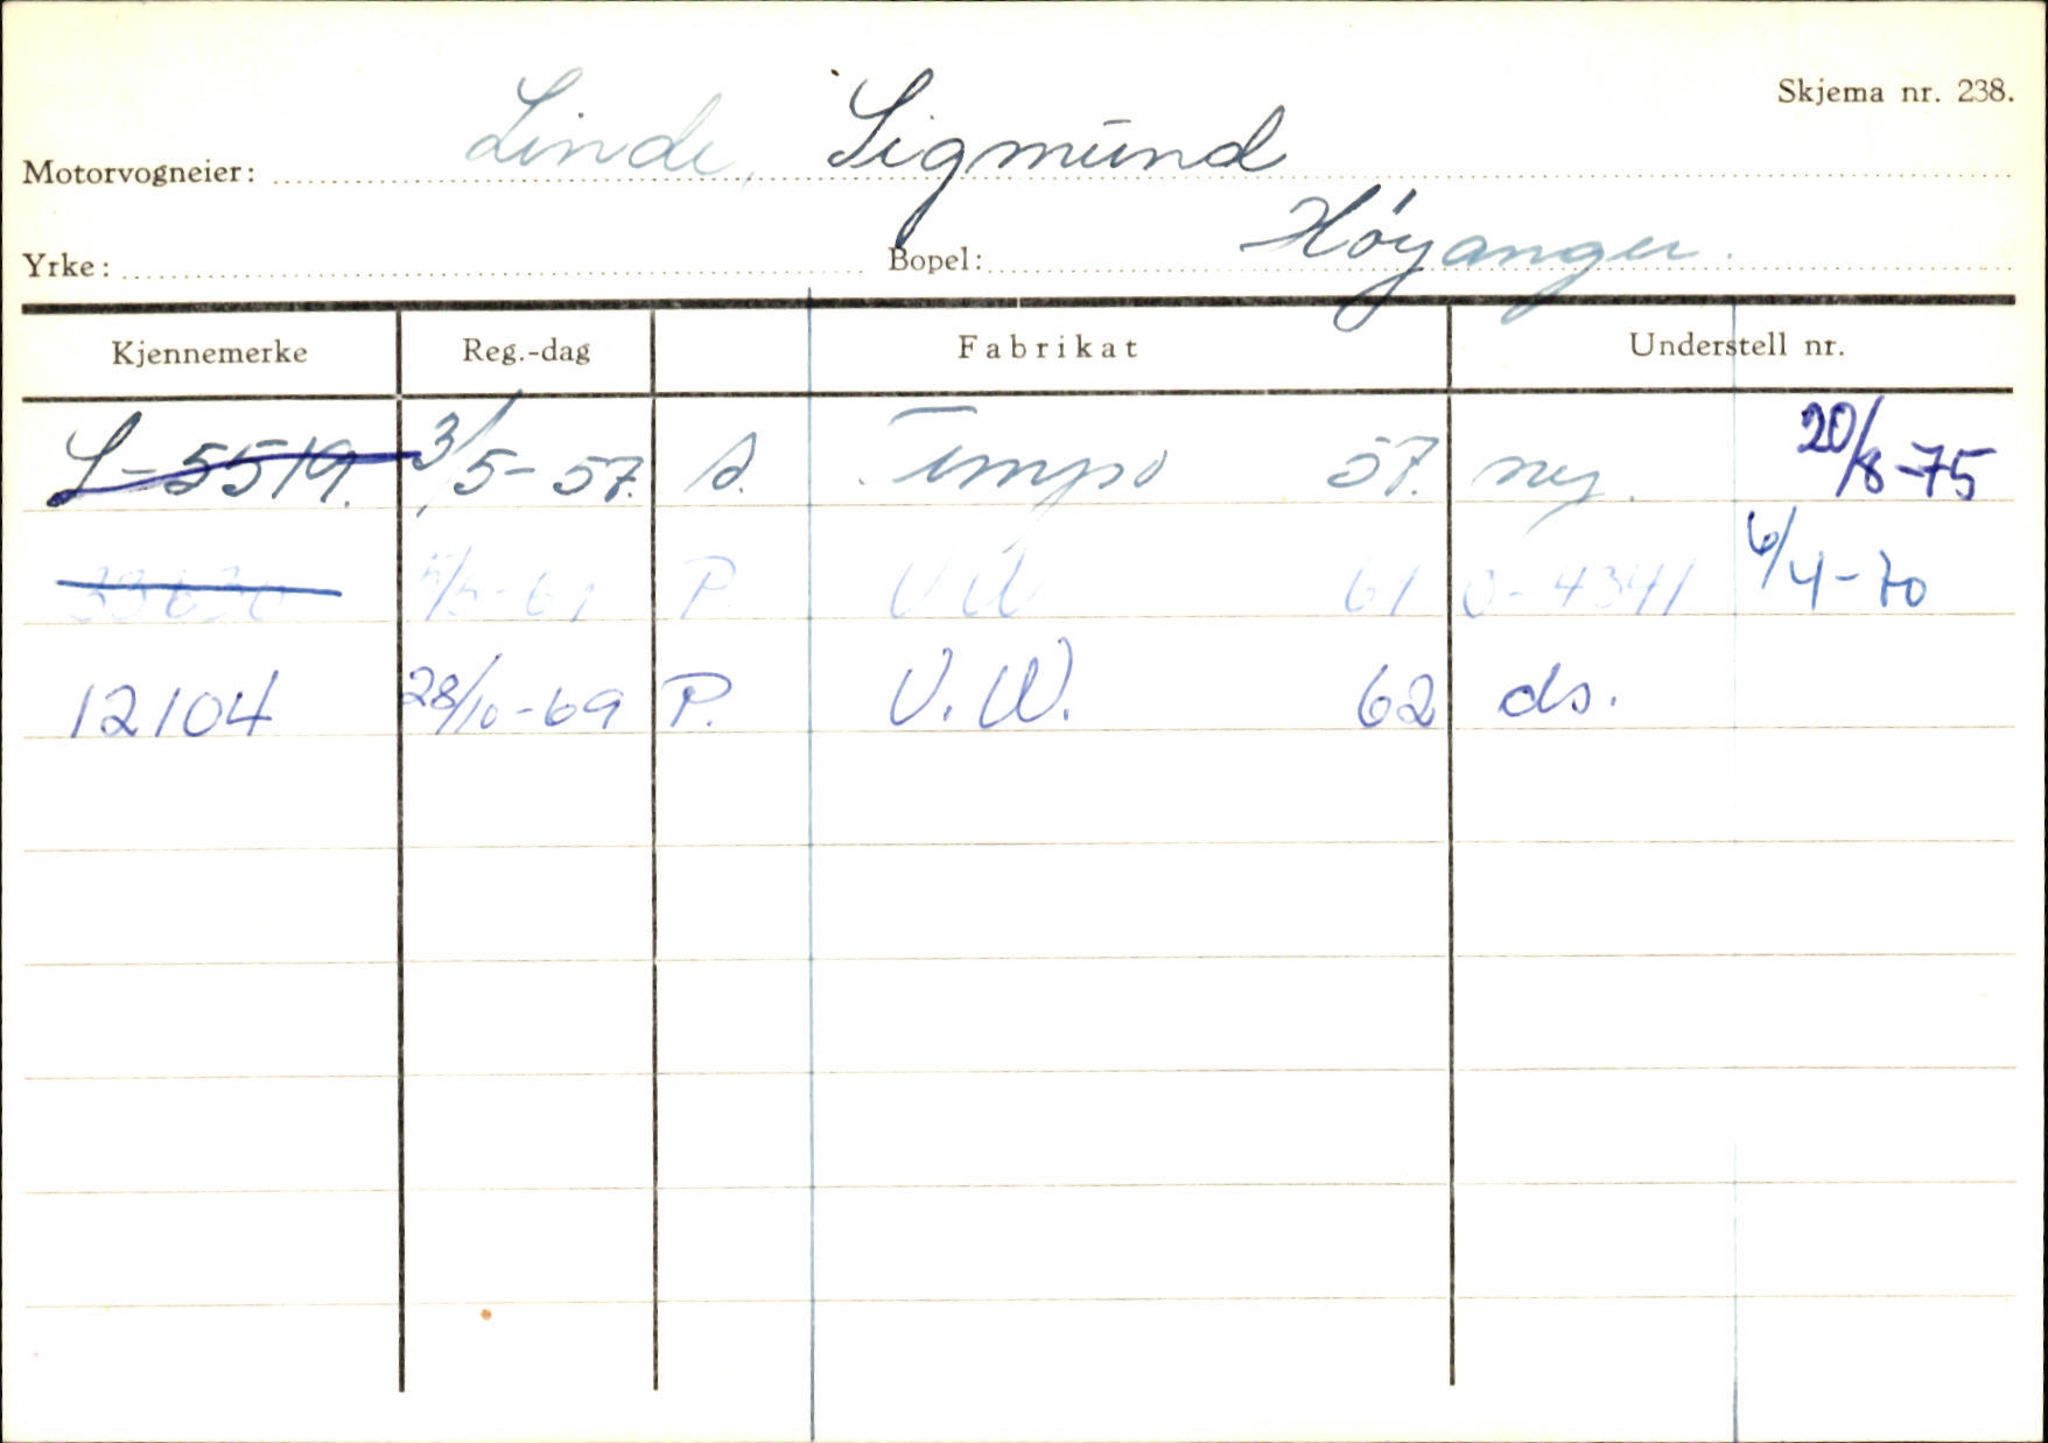 Skjema nr. 238.
Motorvogneier: Linde, Sigmund
Yrke: Bopel: Høyanger.
Kjennemerke Reg.-dag Fabrikat Understell nr.
S-5519. 3/5-57. s. Tempo 57. ny. 20/8-75
P. VW 61 0-4341 6/4-70
12104 28/10-69 P. V.W. 62 ds.